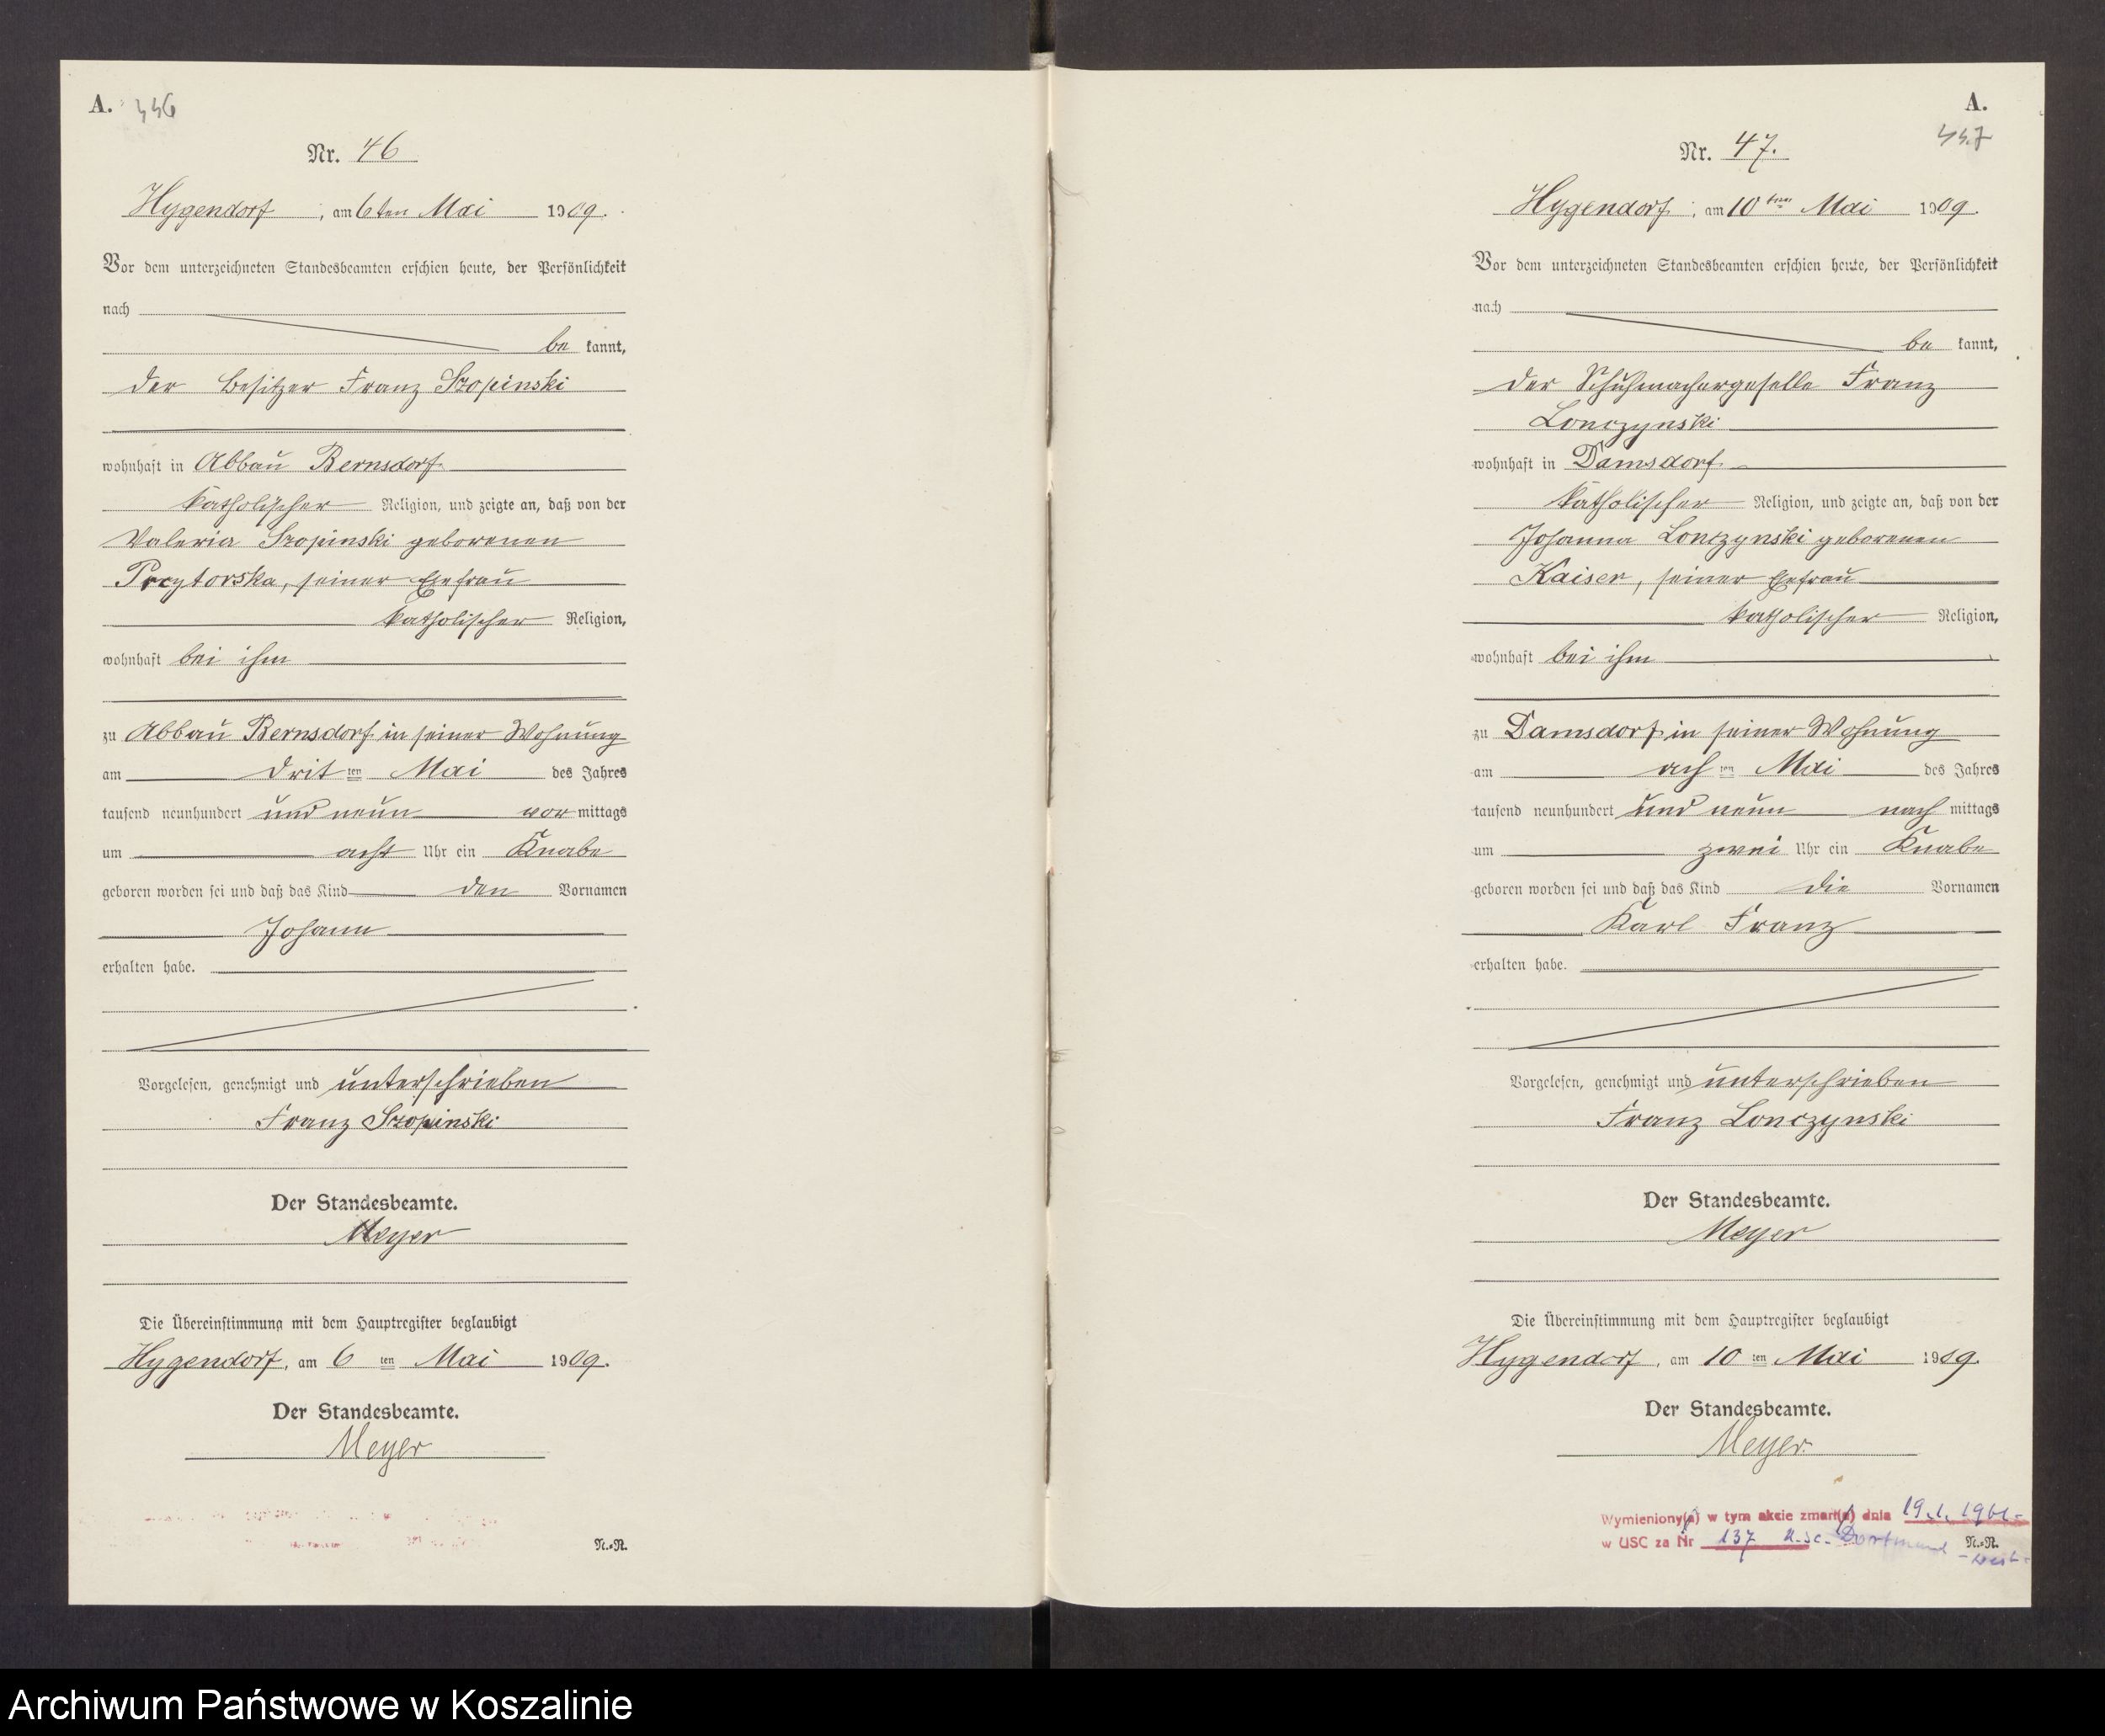 A. 446
Nr. 46
Hygendorf, am 6ten Mai 1909.
Vor dem unterzeichneten Standesbeamten erschien heute, der Persönlichkeit
nach
be kannt,
der Besitzer Franz Szopinski
wohnhaft in Abbau Bernsdorf
katholischer Religion, und zeigte an, daß von der
Valeria Szopinski geborenen
seiner Ehefrau
katholischer Religion,
wohnhaft bei ihm
zu Abbau Bernsdorf in seiner Wohnung
am drit ten Mai des Jahres
tausend neunhundert und neun vor mittags
um acht Uhr ein Knabe
geboren worden sei und daß das Kind den Vornamen
Johann
erhalten habe.
Vorgelesen, genehmigt und unterschrieben
Franz Szopinski
Der Standesbeamte.
Meyer
Die Übereinstimmung mit dem Hauptregister beglaubigt
Hygendorf, am 6 ten Mai 1909.
Der Standesbeamte.
Meyer
N.-R.
A.
447
Nr. 47.
Hygendorf, am 10ten Mai 1909.
Vor dem unterzeichneten Standesbeamten erschien heute, der Persönlichkeit
nach
be kannt,
der Schuhmachergeselle Franz
Lonczynski
wohnhaft in Damsdorf
katholischer Religion, und zeigte an, daß von der
Johanna Lonczynski geborenen
Kaiser, seiner Ehefrau
katholischer Religion,
wohnhaft bei ihm
zu Damsdorf in seiner Wohnung
am ach ten Mai des Jahres
tausend neunhundert und neun nach mittags
um zwei Uhr ein Knabe
geboren worden sei und daß das Kind die Vornamen
Karl Franz
erhalten habe.
Vorgelesen, genehmigt und unterschrieben
Franz Lonczynski
Der Standesbeamte.
Meyer
Die Übereinstimmung mit dem Hauptregister beglaubigt
Hygendorf, am 10 ten Mai 1909.
Der Standesbeamte.
Meyer
Wymieniony(a) w tym akcie zmarł(a) dnia 19.1.1961
w USC za Nr 137 U.S.C. Dortmund - West -
N.-R.
Archiwum Państwowe w Koszalinie